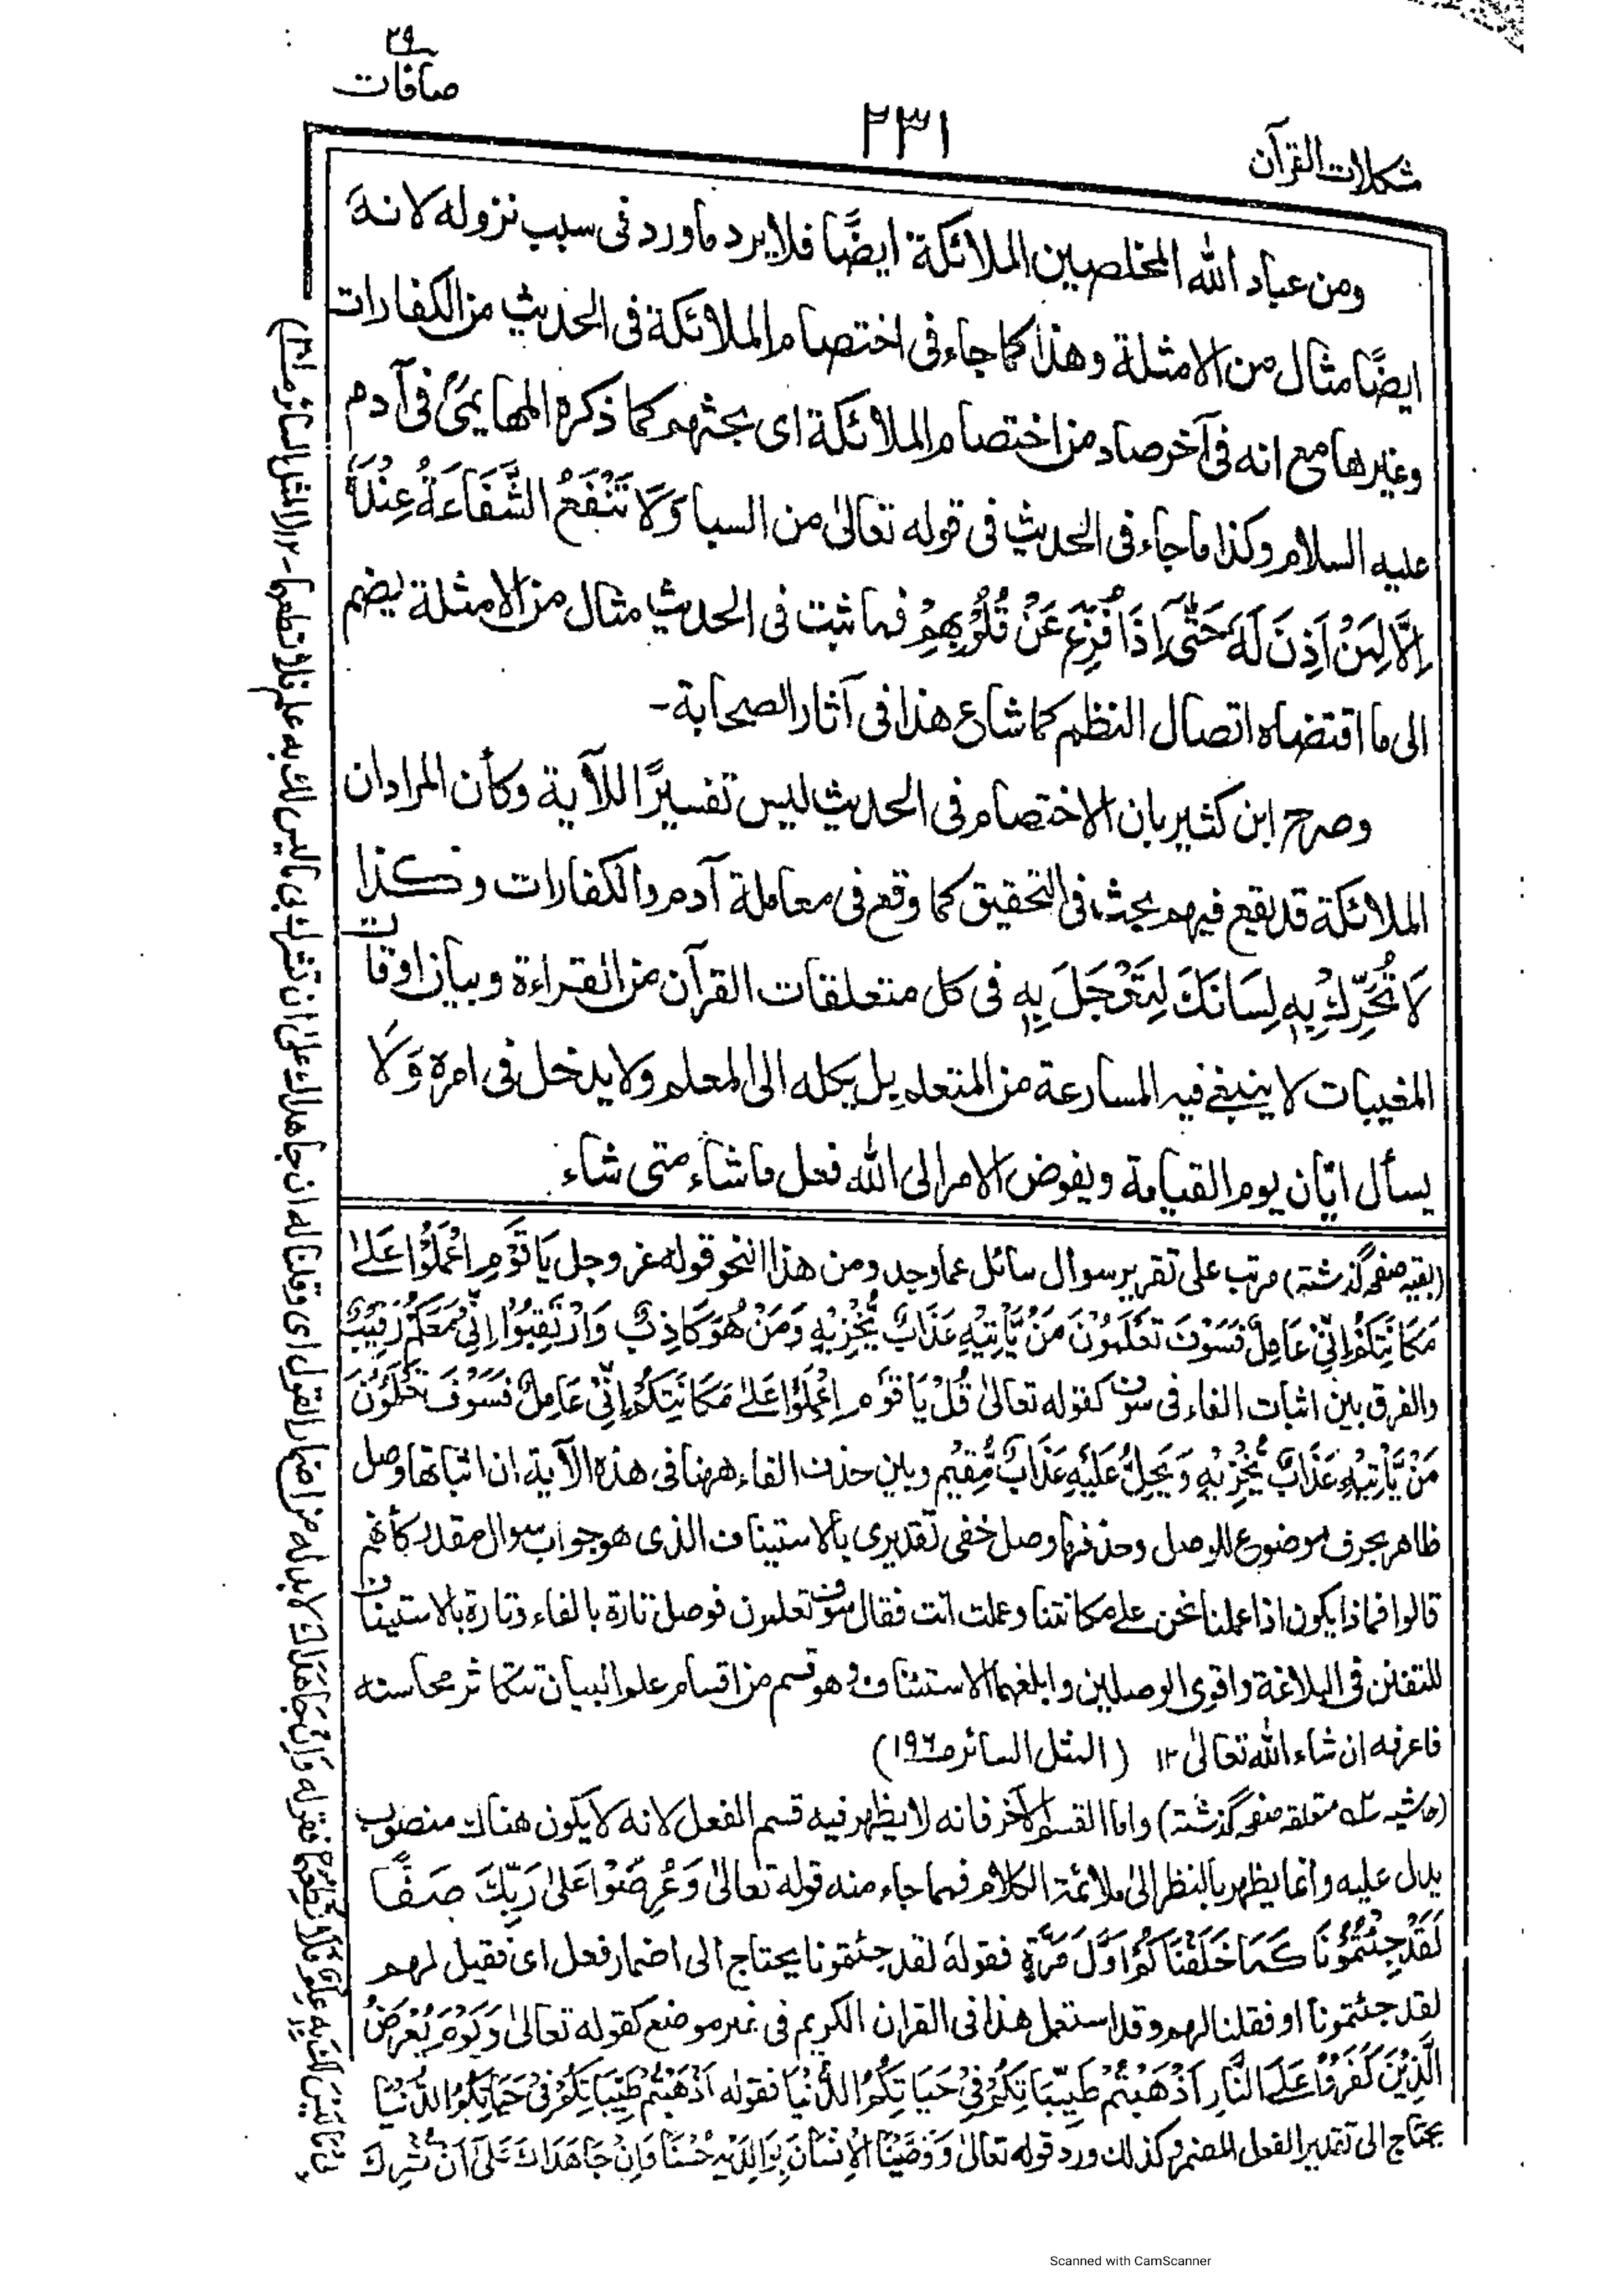 ٢٩
صافات
٢٣١
مشكلات القرآن
ومن عباد الله المخلصين الملائكة ايضًا فلا يرد ما ورد فى سبب نزوله لانه
ايضًا مثال من الامثلة وهذا كما جاء فى اختصام الملائكة فى الحديث من الكفارات
وغيرها مع انه فى آخر صاد من اختصام الملائكة اى بحثهم كما ذكره المهايمىؒ فى آدم
عليه السلام وكذا ما جاء فى الحديث فى قوله تعالىٰ من السبا وَلَا تَنْفَعُ الشَّفَاعَةُ عِنْدَهٗٓ
اِلَّا لِمَنْ اَذِنَ لَهٗ حَتّٰٓى اِذَا فُزِّعَ عَنْ قُلُوْبِهِمْ فما ثبت فى الحديث مثال من الامثلة يضم
الى ما اقتضاه اتصال النظم كما شاع هذا فى آثار الصحابة-
وصرح ابن كثير بان الاختصام فى الحديث ليس تفسيرًا للآية وكأن المراد ان
الملائكة قد يقع فيهم بحث فى التحقيق كما وقع فى معاملة آدم والكفارات وكذا
لَا تُحَرِّكْ بِهٖ لِسَانَكَ لِتَعْجَلَ بِهٖ فى كل متعلقات القرآن من القراءة وبيان اوقات
المغيبات لا ينبغى فيه المسارعة من المتعلم بل يكله الى المعلم ولا يدخل فى امره وَلَا
يسأل ايّان يوم القيامة ويفوض الامر الى الله فعل ما شاء متى شاء.
(بقيه صفحه گذشته) مرتب على تقرير سوال سائل عما وجد ومن هذا النحو قوله عز وجل يَا قَوْمِ اعْمَلُوْا عَلٰى
مَكَانَتِكُمْ اِنِّىْ عَامِلٌ سَوْفَ تَعْلَمُوْنَ مَنْ يَّاْتِيْهِ عَذَابٌ يُّخْزِيْهِ وَمَنْ هُوَ كَاذِبٌ وَارْتَقِبُوْا اِنِّىْ مَعَكُمْ رَقِيْبٌ
والفرق بين اثبات الفاء فى سوف كقوله تعالىٰ قُلْ يَا قَوْمِ اعْمَلُوْا عَلٰى مَكَانَتِكُمْ اِنِّىْ عَامِلٌ فَسَوْفَ تَعْلَمُوْنَ
مَنْ يَّاْتِيْهِ عَذَابٌ يُّخْزِيْهِ وَيَحِلُّ عَلَيْهِ عَذَابٌ مُّقِيْم وبين حذف الفاء ههنا فى هذه الآية ان اثباتها وصل
ظاهر بحرف موضوع للوصل وحذفها وصل خفى تقديرى بالاستيناف الذى هو جواب سوال مقدر كأنهم
قالوا فماذا يكون اذا عملنا نحن على مكانتنا وعملت انت فقال سوف تعلمون فوصل تارة بالفاء وتارة بالاستيناف
للتفنن فى البلاغة واقوى الوصلين وابلغهما الاستئناف وهو قسم من اقسام علم البيان تتكاثر محاسنه
فاعرفه ان شاء الله تعالىٰ ١٢ (المثل السائر ص١٩٦)
(حاشيه متعلقه صفحه گذشته) واما القسم الآخر فانه لا يظهر فيه قسم الفعل لانه لا يكون هناك منصوب
يدل عليه وانما يظهر بالنظر الىٰ ملائمة الكلام فمما جاء منه قوله تعالىٰ وَعُرِضُوْا عَلىٰ رَبِّكَ صَفًّا
لَقَدْ جِئْتُمُوْنَا كَمَا خَلَقْنَاكُمْ اَوَّلَ مَرَّةٍ فقوله لقد جئتمونا يحتاج الى اضمار فعل اى فقيل لهم
لقد جئتمونا او فقلنا لهم وقد استعمل هذا فى القران الكريم فى غير موضع كقوله تعالىٰ وَيَوْمَ يُعْرَضُ
الَّذِيْنَ كَفَرُوْا عَلَى النَّارِ اَذْهَبْتُمْ طَيِّبَاتِكُمْ فِىْ حَيَاتِكُمُ الدُّنْيَا فقوله اَذْهَبْتُمْ طَيِّبَاتِكُمْ فِىْ حَيَاتِكُمُ الدُّنْيَا
يحتاج الى تقدير الفعل المضمر وكذلك ورد قوله تعالىٰ وَوَصَّيْنَا الْاِنْسَانَ بِوَالِدَيْهِ حُسْنًا وَاِنْ جَاهَدَاكَ عَلٰى اَنْ تُشْرِكَ
بِىْ مَا لَيْسَ لَكَ بِهٖ عِلْمٌ فَلَا تُطِعْهُمَا فقوله وَاِنْ جَاهَدَاكَ لا بد له من اضمار القول اى وقلنا له ان جاهداك على ان تشرك بى ما ليس لك به علم فلا تطعهما-١٢ (المثل السائر
Scanned with CamScanner